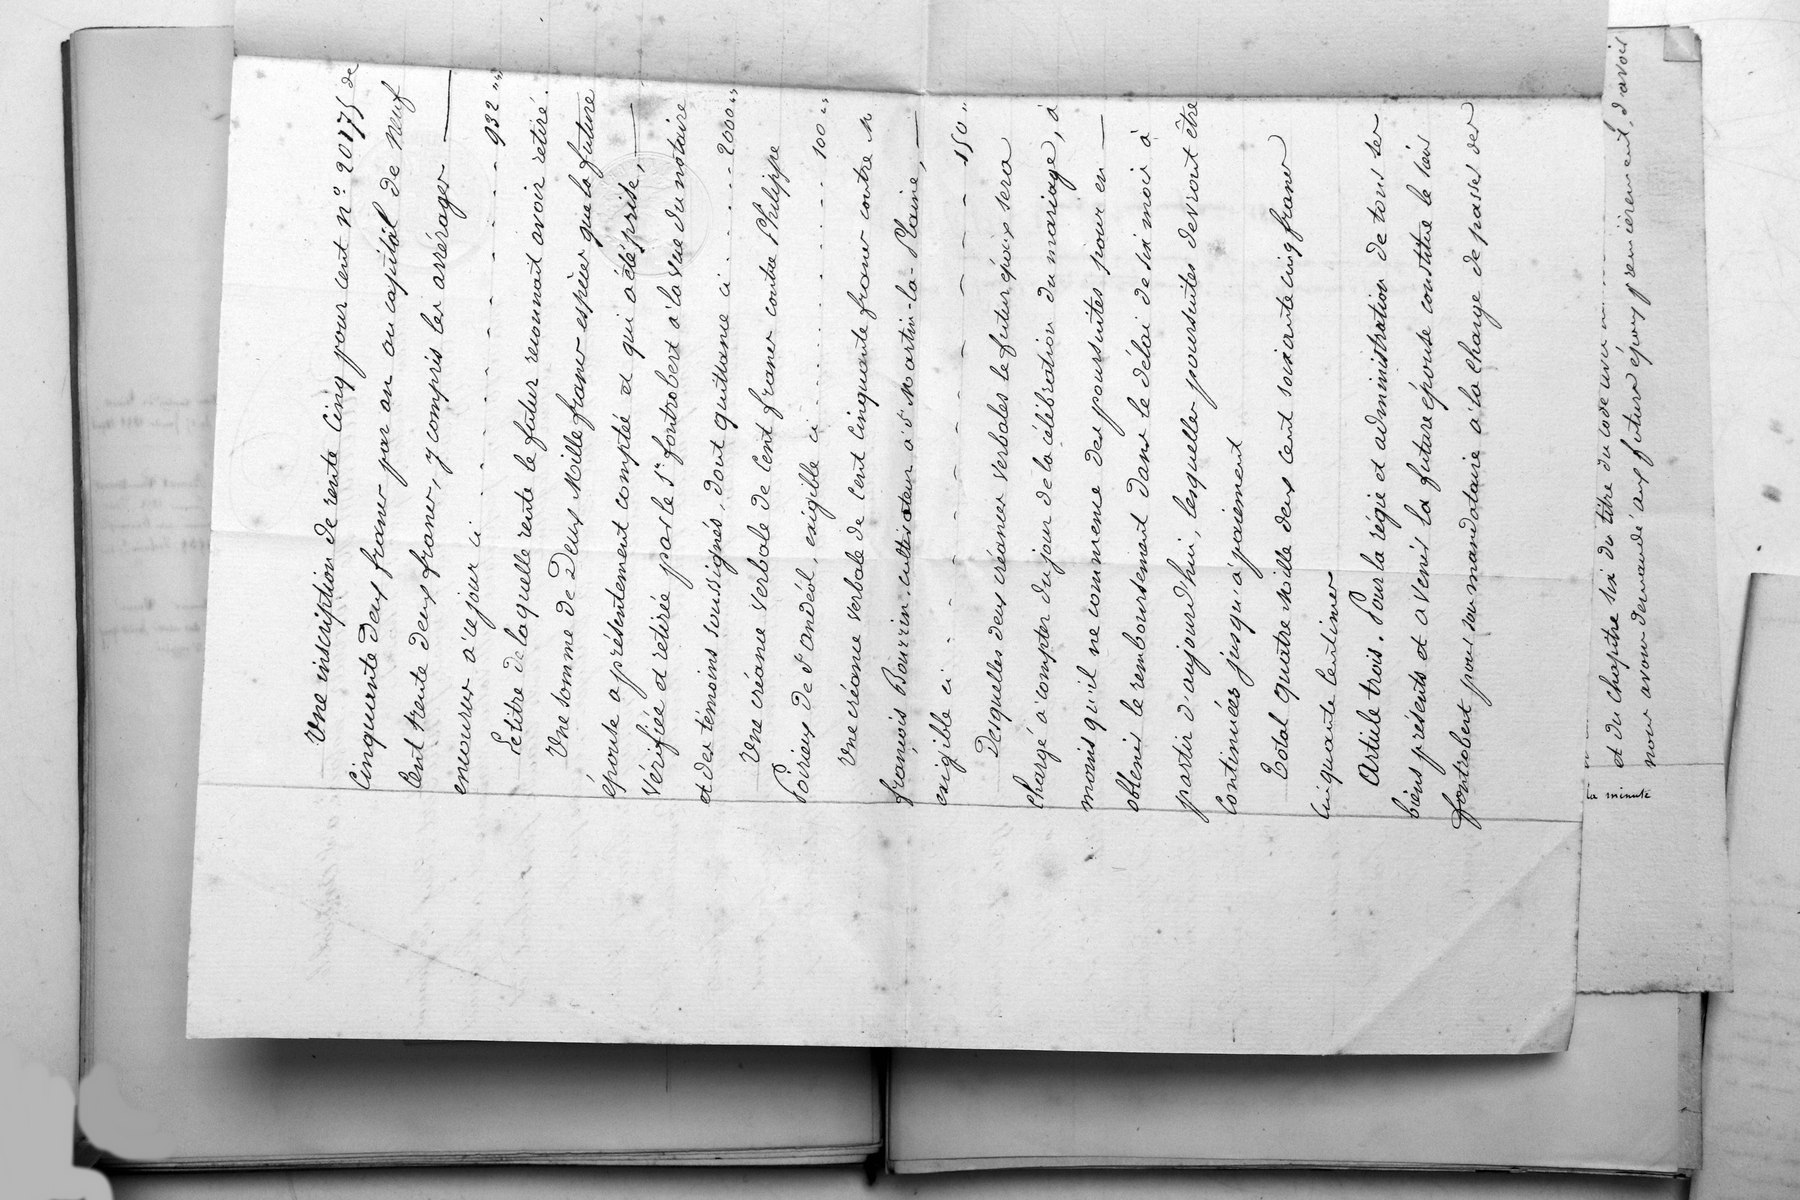 Une inscription de rente Cinq pour cent n° 20175 de
Cinquante deux francs par an au capital de neuf
Cent trente deux francs, y compris les arrérages
encourus à ce jour ci . . . . . . . . 932 "
Le titre de laquelle rente le futur reconnait avoir retiré.
Une somme de Deux Mille francs espèces que la future
épouse a présentement comptée et qui a été prise,
Vérifiée et retirée par le Sr fontrobert à la vue du notaire
et des témoins soussignés, dont quittance ci . . . . 2000 "
Une créance verbale de Cent francs contre Philippe
Poirieux de St andéol, exigible ci . . . . . . . . 100 "
Une créance verbale de Cent Cinquante francs contre M
françois Bourrin cultivateur à St Martin-la-Plaine,
exigible ci . . . . . . . . 150 "
Desquelles deux créances verbales le futur époux sera
Chargé à compter du jour de la célébration du mariage, à
moins qu'il ne commence des poursuites pour en
obtenir le remboursement dans le délai de six mois à
partir d'aujourd'hui, lesquelles poursuites devront être
Continuées jusqu'à paiement
Total quatre Mille deux cent soixante cinq francs
Cinquante Centimes
Article trois. Pour la régie et administration de tous ses
biens présents et a venir la future épouse constitue le sieur
fontrobert pour son mandataire à la charge de passer des
et du chapitre six du titre du code civil
nous avons demandé aux futurs époux premièrement, d'avoir
la minute